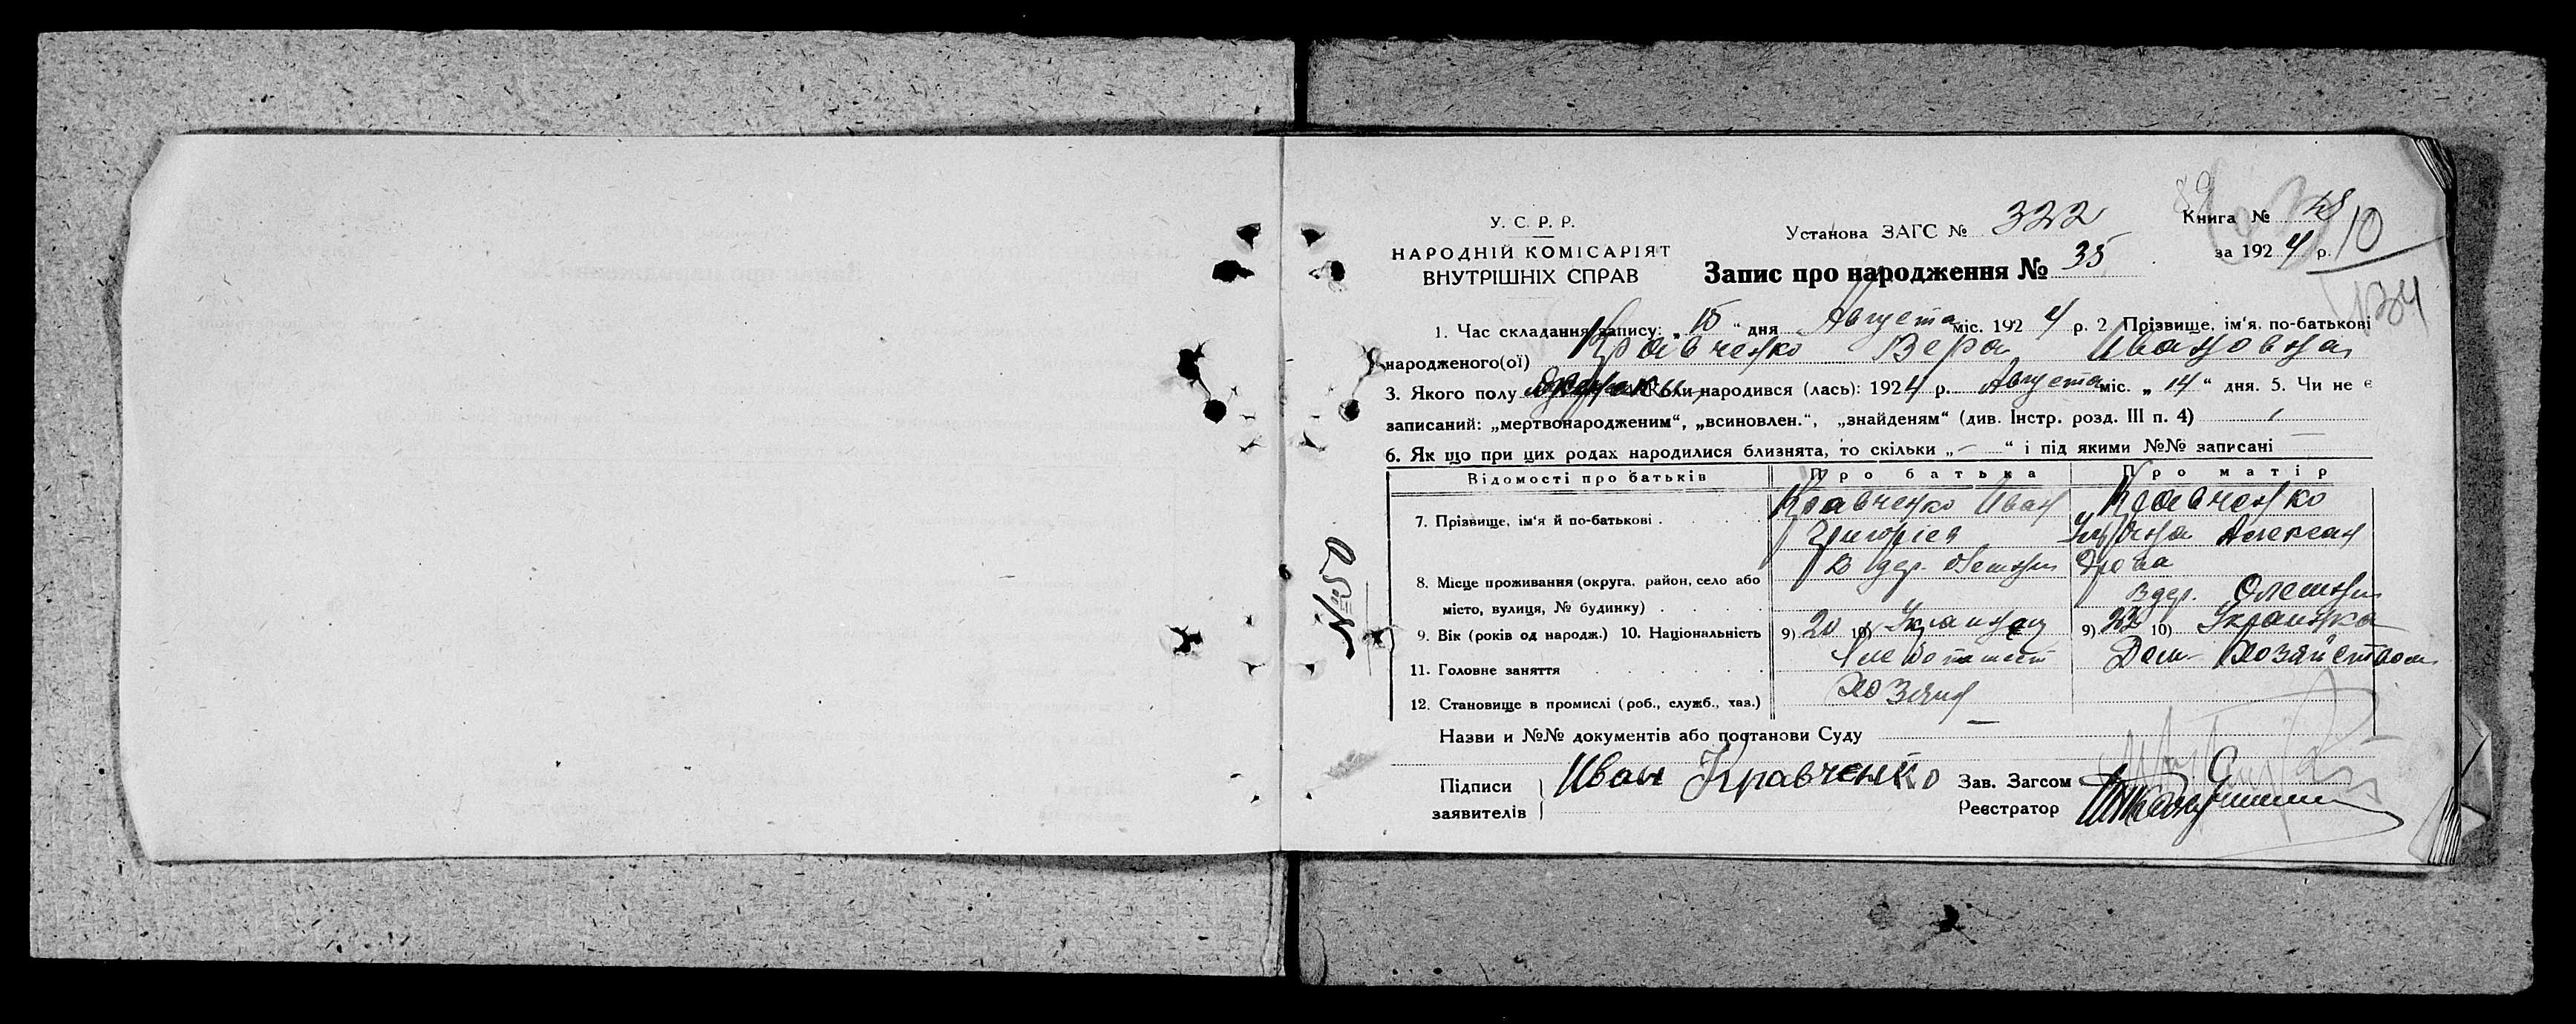 У. С. Р. Р.
НАРОДНІЙ КОМІСАРІЯТ
ВНУТРІШНІХ СПРАВ
Установа ЗАГС № 322
Запис про народження № 35
Книга №
за 1924 р.
10
134
1. Час складання запису: „ 15 “ дня Августа міс. 1924 р. 2 Прізвище, ім‘я, по-батькові
народженого(ої) Кравченко Вера Ивановна
3. Якого полу Коли народився (лась): 1924 р. Августа міс. „ 14 “ дня. 5. Чи не є
записаний: „мертвонародженим“, „всиновлен.“, „знайденям“ (див. Інстр. розд. III п. 4)
6. Як що при цих родах народилися близнята, то скільки „ — “ і під якими №№ записані —
Відомості про батьків Про батька Про матір
7. Прізвище, ім‘я й по-батькові . Кравченко Иван Кравченко
Григоріев Алексан
дрова
8. Місце проживання (округа, район, село або В дер.
місто, вулиця, № будинку) . В дер. Олешки
9. Вік (років од народж.) 10. Національність 9) 20 10) Украинец 9) 22 10) Украинка
11. Головне заняття Хлебопашест Дом- Хозяйством
12. Становище в промислі (роб., служб., хаз.) Хозяин
Назви и №№ документів або постанови Суду —
Підписи заявителів Иван Кравченко
Зав. Загсом
Реєстратор
№ 50